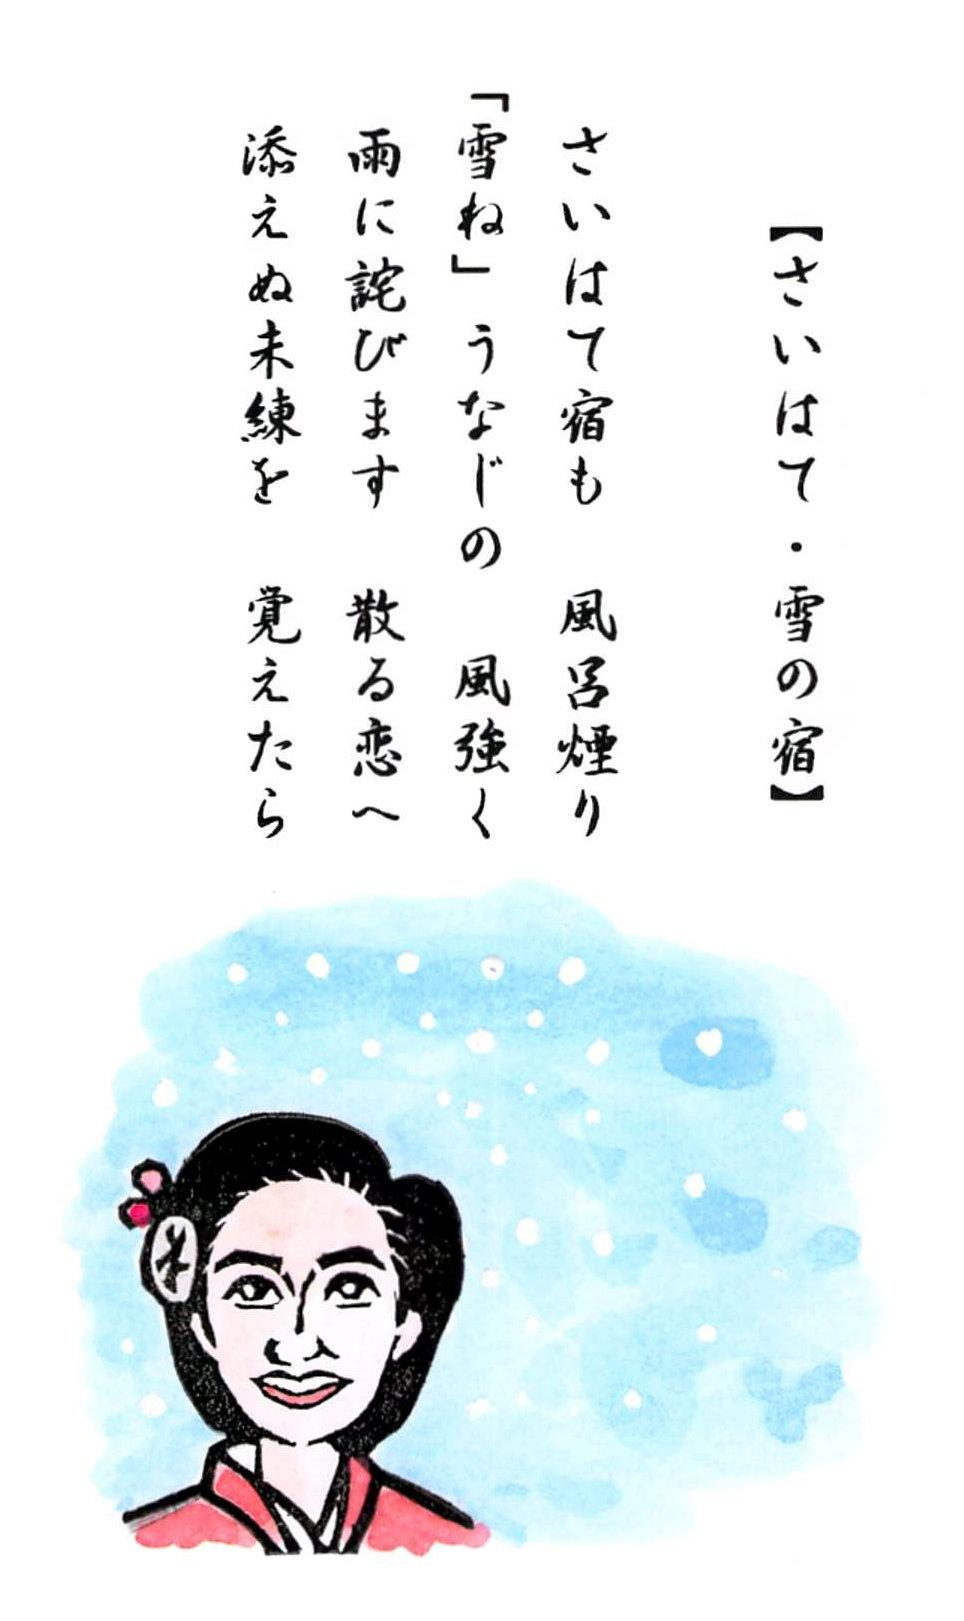 【さいはて・雪の宿】
さいはて宿も　風呂煙り
「雪ね」うなじの　風強く
雨に詫びます　散る恋へ
添えぬ未練を　覚えたら